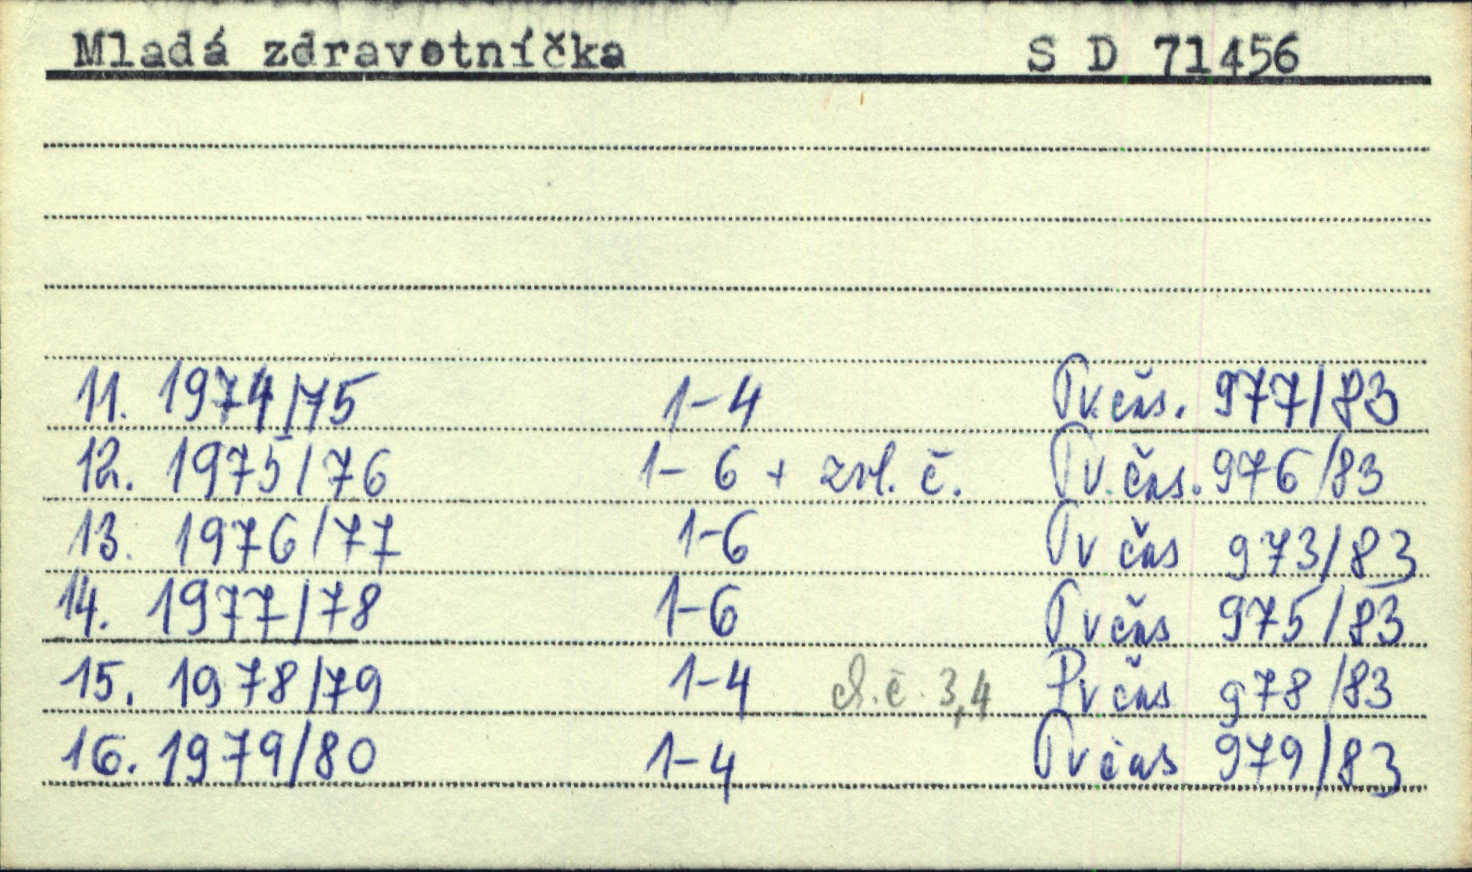 Mladá zdravotníčka S D 71456
11. 1974/75 1-4 Pv.čas. 977/83
12. 1975/76 1-6 + zvl. č. Pv.čas. 976/83
13. 1976/77 1-6 Pv čas 973/83
14. 1977/78 1-6 Pv čas 975/83
15. 1978/79 1-4 č. 3,4 Pv čas 978/83
16. 1979/80 1-4 Pv čas 979/83